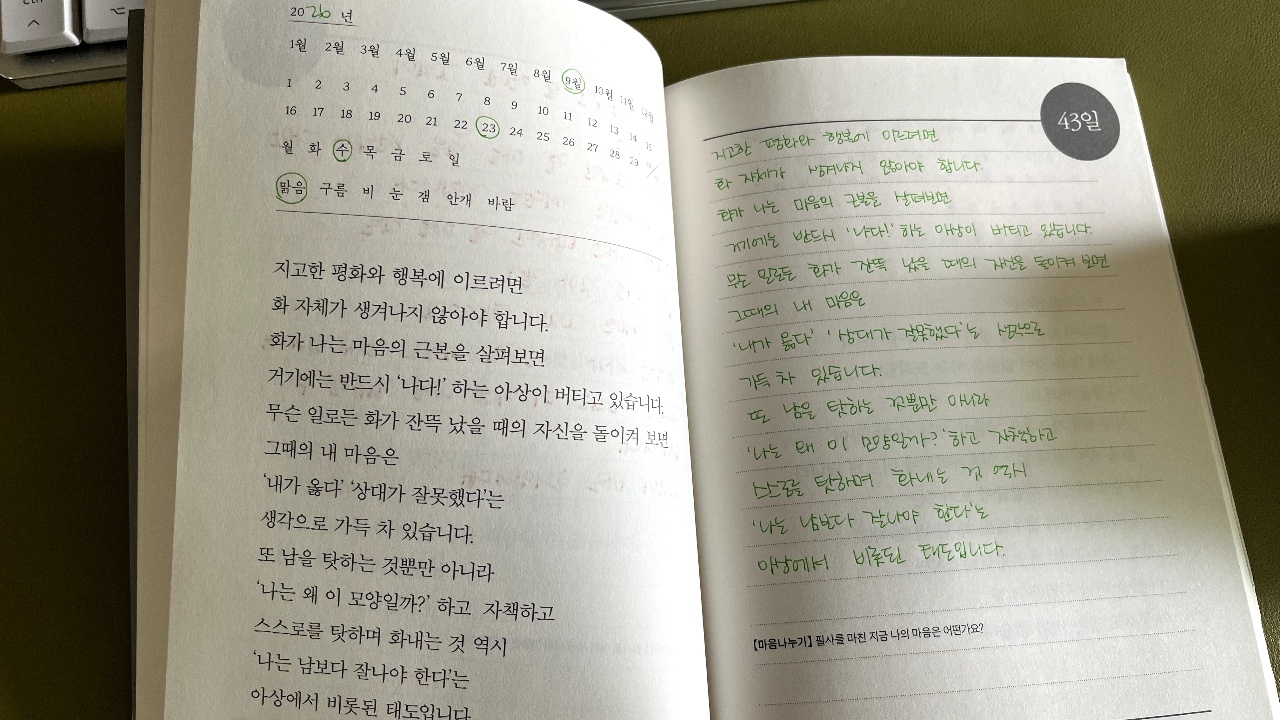 ctrl
2026 년
1월 2월 3월 4월 5월 6월 7월 8월 9월 10월 11월 12월
1 2 3 4 5 6 7 8 9 10 11 12 13 14 15
16 17 18 19 20 21 22 23 24 25 26 27 28 29
월 화 수 목 금 토 일
맑음 구름 비 눈 갬 안개 바람
지고한 평화와 행복에 이르려면
화 자체가 생겨나지 않아야 합니다.
화가 나는 마음의 근본을 살펴보면
거기에는 반드시 ‘나다!’ 하는 아상이 버티고 있습니다.
무슨 일로든 화가 잔뜩 났을 때의 자신을 돌이켜 보면
그때의 내 마음은
‘내가 옳다’ ‘상대가 잘못했다’는
생각으로 가득 차 있습니다.
또 남을 탓하는 것뿐만 아니라
‘나는 왜 이 모양일까?’ 하고 자책하고
스스로를 탓하며 화내는 것 역시
‘나는 남보다 잘나야 한다’는
아상에서 비롯된 태도입니다
43일
지고한 평화와 행복에 이르려면
화 자체가 생겨나지 않아야 합니다.
화가 나는 마음의 근본을 살펴보면
거기에는 반드시 '나다!' 하는 아상이 버티고 있습니다.
무슨 일로든 화가 잔뜩 났을 때의 자신을 돌이켜 보면
그때의 내 마음은
'내가 옳다' '상대가 잘못했다'는 생각으로
가득 차 있습니다.
또 남을 탓하는 것뿐만 아니라
'나는 왜 이 모양일까?' 하고 자책하고
스스로를 탓하며 화내는 것 역시
'나는 남보다 잘나야 한다'는
아상에서 비롯된 태도입니다.
[마음나누기] 필사를 마친 지금 나의 마음은 어떤가요?